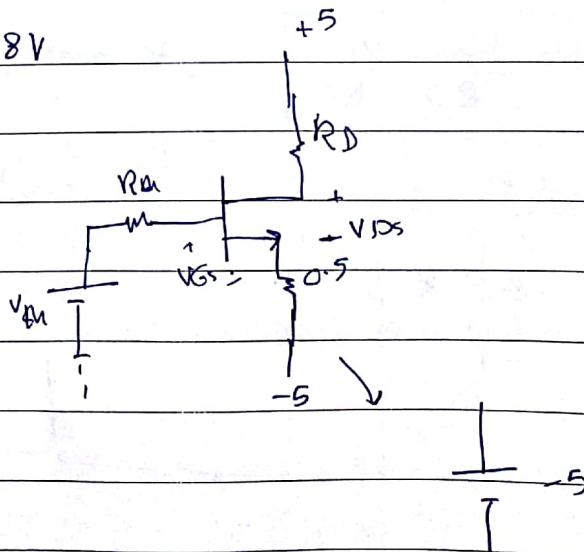 8 V
+5
RD
Rth
+
- VDS
VGS
0.5
Vth
-5
-5